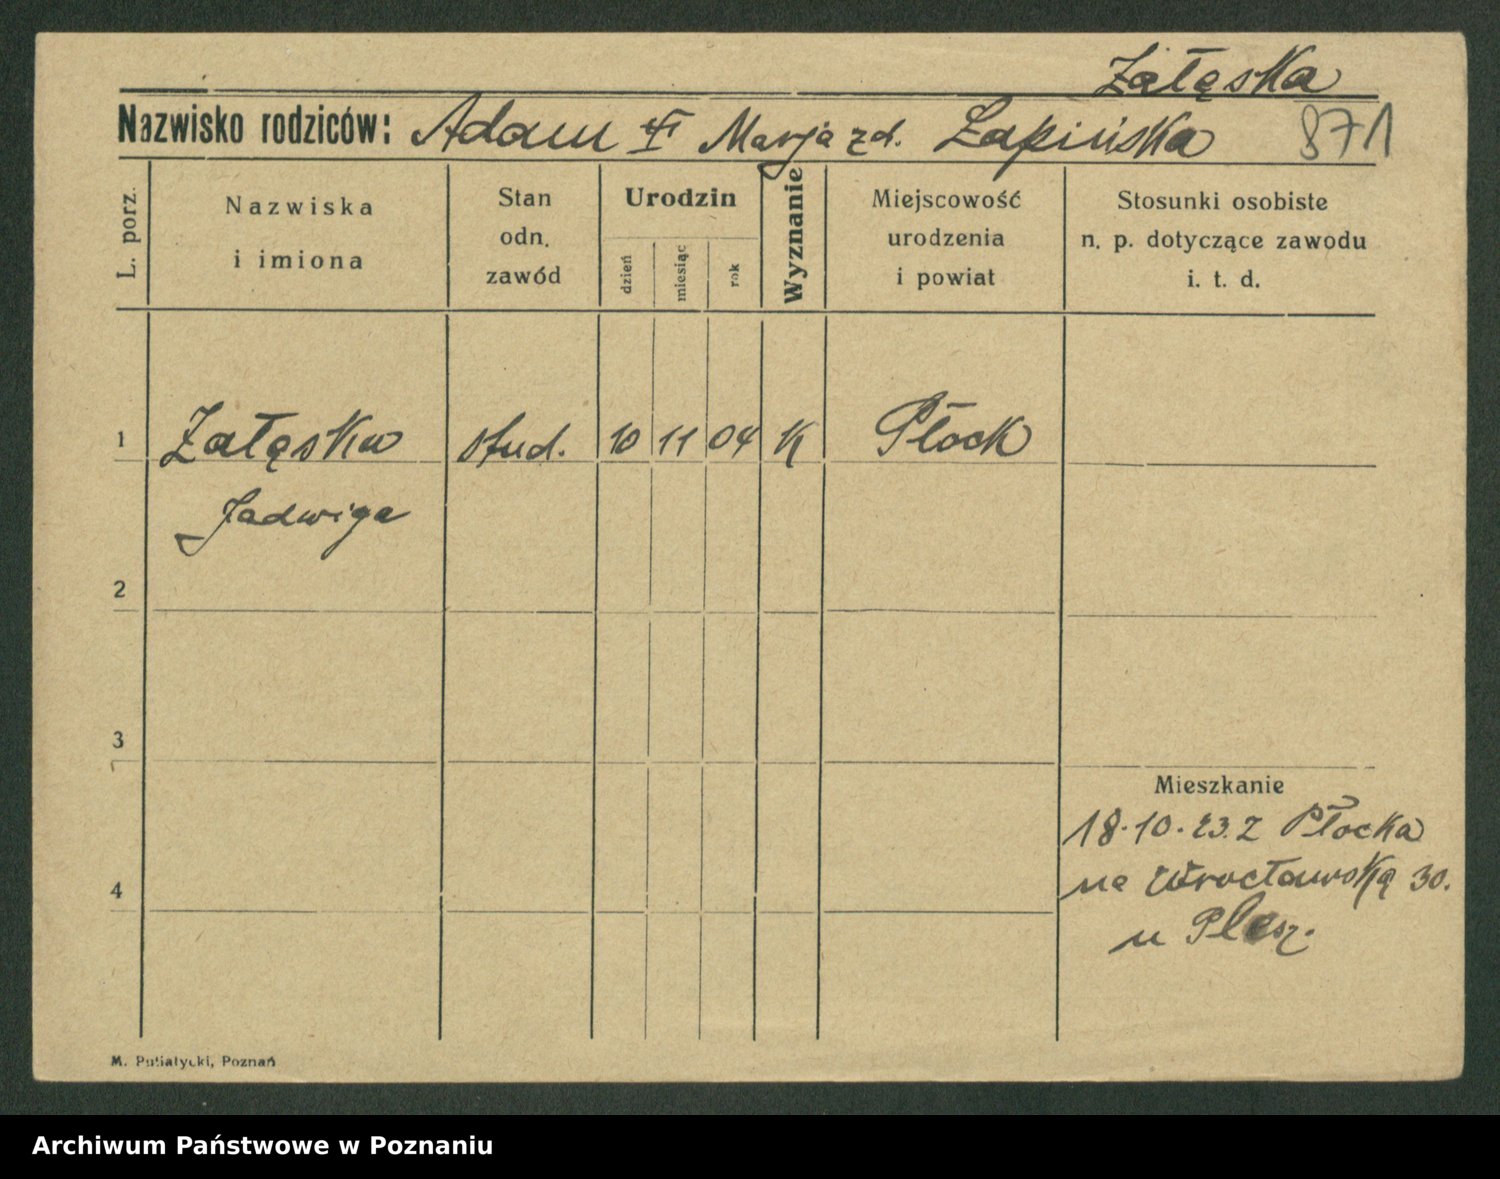 Załęska
Nazwisko rodziców: Adam ✝ Marja zd. Łapińska 871
L. porz.
Nazwiska
i imiona
Stan
odn.
zawód
Urodzin
dzień
miesiąc
rok
Wyznanie
Miejscowość
urodzenia
i powiat
Stosunki osobiste
n. p. dotyczące zawodu
i. t. d.
1 Załęska stud. 10 11 04 K Płock
Jadwiga
2
3
Mieszkanie
18.10.23. Z Płocka
na Wrocławską 30.
4
u Plesz.
M. Putiatycki, Poznań
Archiwum Państwowe w Poznaniu